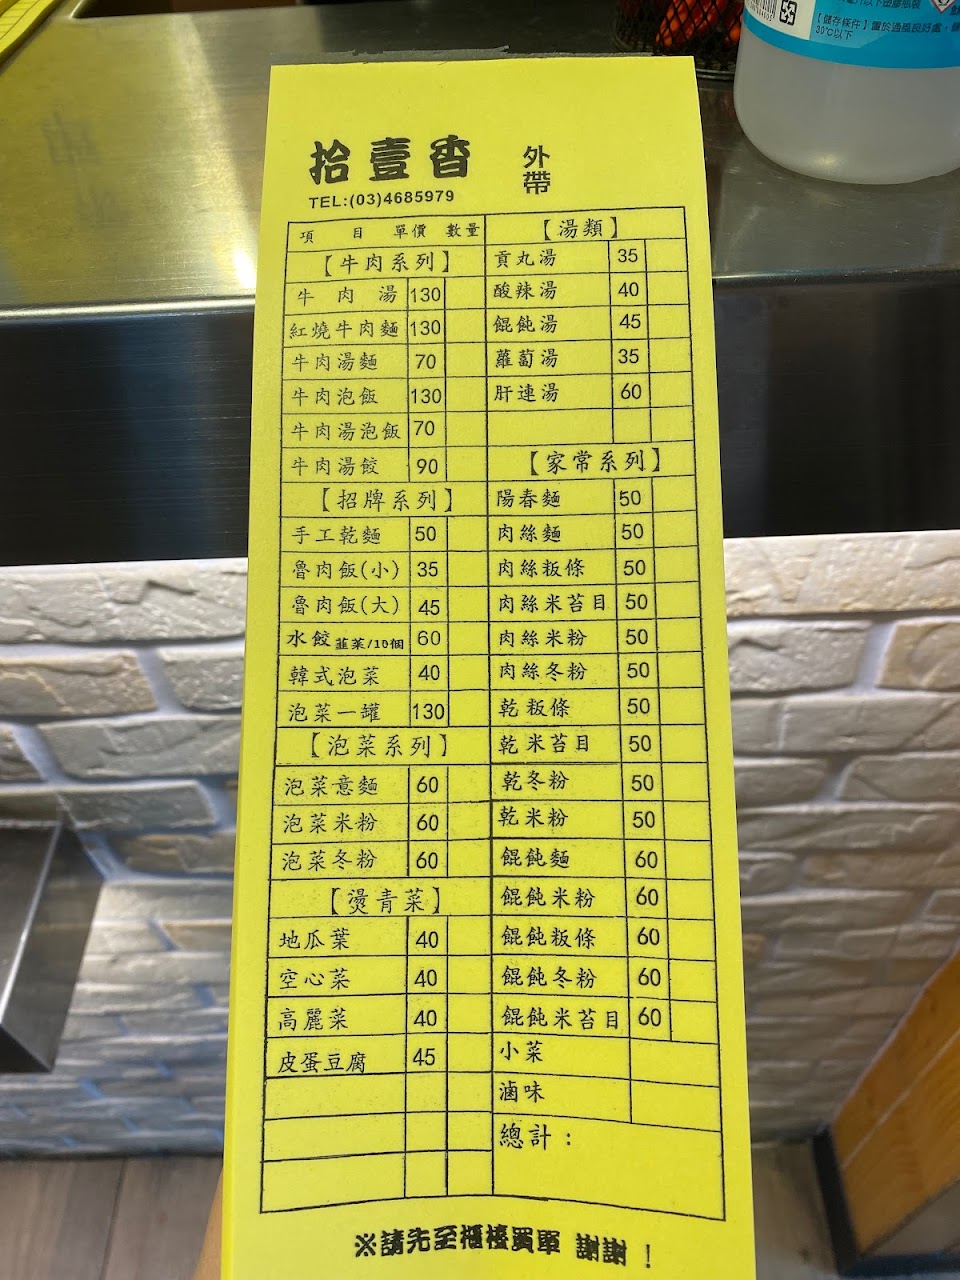 拾壹香
外帶
TEL:(03)4685979
項 目 單價 數量
【牛肉系列】
牛肉湯 130
紅燒牛肉麵 130
牛肉湯麵 70
牛肉泡飯 130
牛肉湯泡飯 70
牛肉湯餃 90
【招牌系列】
手工乾麵 50
魯肉飯(小) 35
魯肉飯(大) 45
水餃 韮菜/10個 60
韓式泡菜 40
泡菜一罐 130
【泡菜系列】
泡菜意麵 60
泡菜米粉 60
泡菜冬粉 60
【燙青菜】
地瓜葉 40
空心菜 40
高麗菜 40
皮蛋豆腐 45
【湯類】
貢丸湯 35
酸辣湯 40
餛飩湯 45
蘿蔔湯 35
肝連湯 60
【家常系列】
陽春麵 50
肉絲麵 50
肉絲粄條 50
肉絲米苔目 50
肉絲米粉 50
肉絲冬粉 50
乾粄條 50
乾米苔目 50
乾冬粉 50
乾米粉 50
餛飩麵 60
餛飩米粉 60
餛飩粄條 60
餛飩冬粉 60
餛飩米苔目 60
小菜
滷味
總計：
※請先至櫃檯買單 謝謝！
【儲存條件】置於通風良好處，
30℃以下